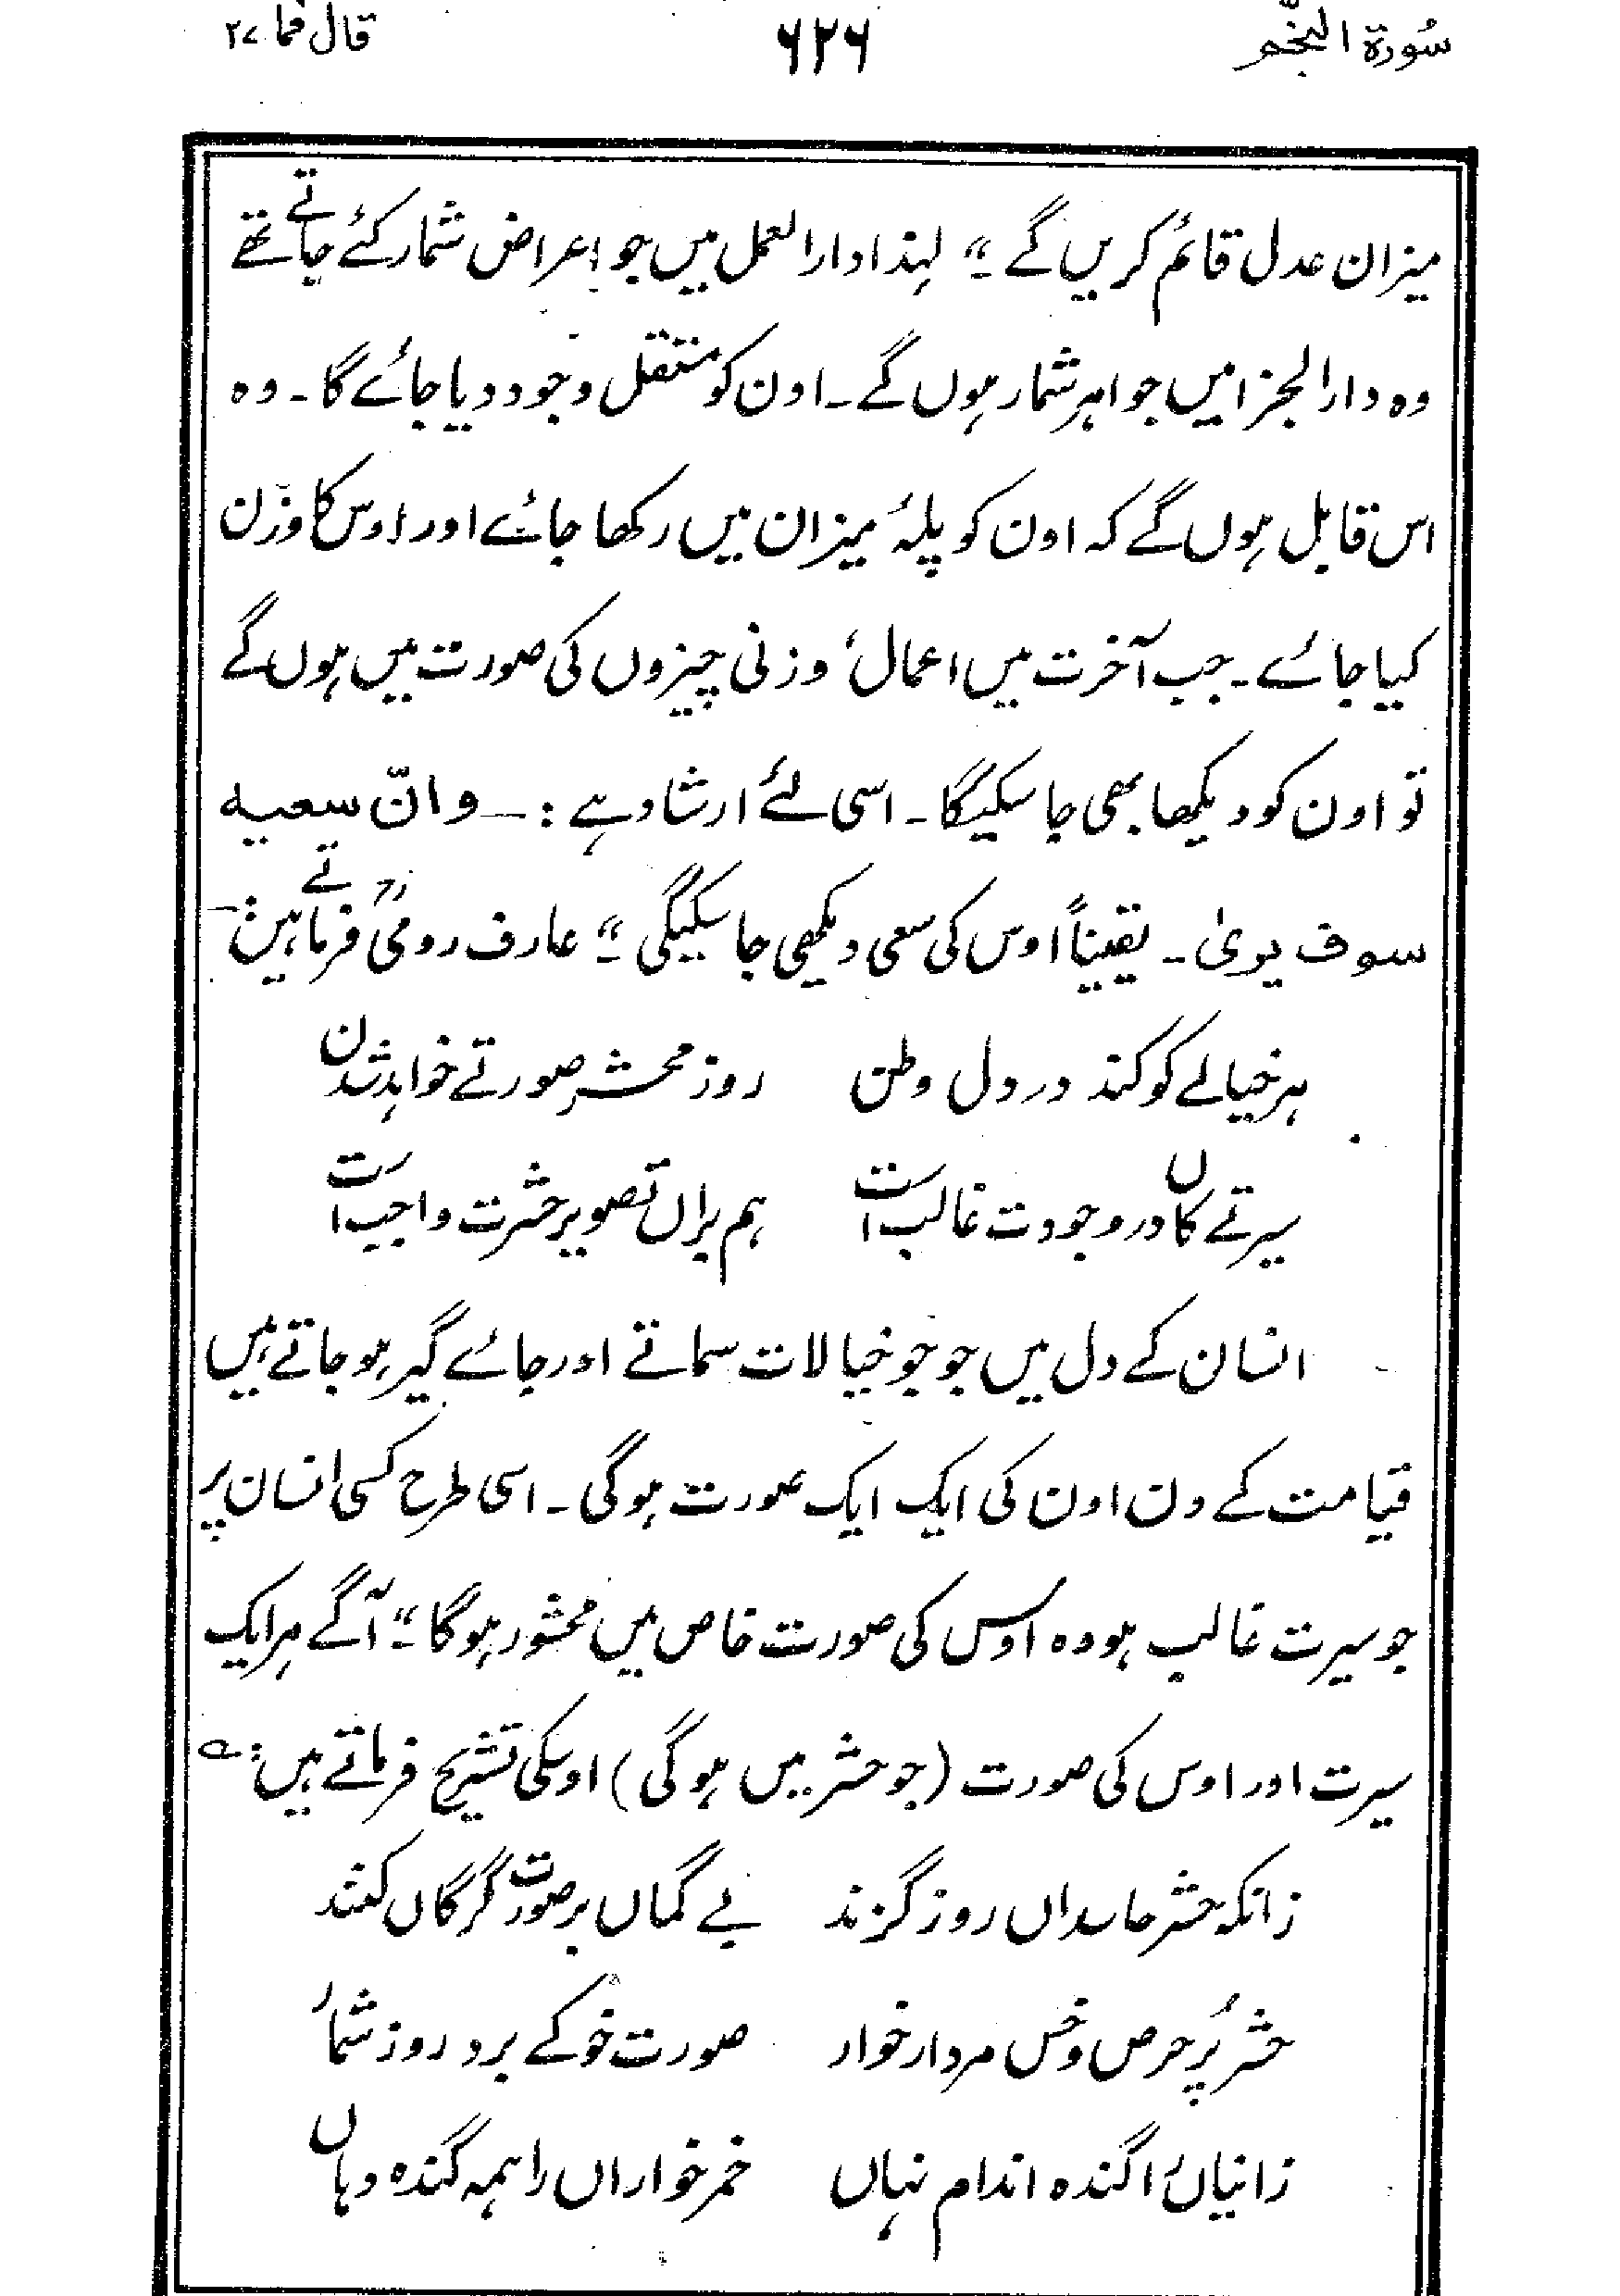 سُورۃ النّجم ۶۲۶ قال فما ۲۷
میزان عدل قائم کریں گے ۔“ لہذا دار العمل میں جو اعراض شمار کئے جاتے تھے
وہ دار الجزا میں جواہر شمار ہوں گے ۔ اون کو مستقل وجود دیا جائے گا ۔ وہ
اس قابل ہوں گے کہ اون کو پلۂ میزان میں رکھا جائے اور اوس کا وزن
کیا جائے ۔ جب آخرت میں اعمال، وزنی چیزوں کی صورت میں ہوں گے
تو اون کو دیکھا بھی جا سکیگا ۔ اسی لئے ارشاد ہے :— وانّ سعیه
سوف یریٰ ۔ یقیناً اوس کی سعی دیکھی جا سکیگی ۔“ عارف رومیؒ فرماتے ہیں :—
ہر خیالے کو کند در دل وطن روز محشر صورتے خواہد شدن
سیرتے کاں در وجودت غالب است ہم براں تصویر حشرت واجب است
انسان کے دل میں جو جو خیالات سماتے اور جائے گیر ہو جاتے ہیں
قیامت کے دن اون کی ایک ایک صورت ہوگی ۔ اسی طرح کسی انسان پر
جو سیرت غالب ہو وہ اوس کی صورت خاص میں محشور ہوگا ۔“ آگے ہر ایک
سیرت اور اوس کی صورت (جو حشر میں ہوگی) اوسکی تشریح فرماتے ہیں :ـہ
زانکہ حشر حاسداں روز گزند بے گماں بر صورت گرگاں کنند
حشر پُر حرص و خس مردار خوار صورت خوکے برد روز شمار
زانیاں را گندہ اندام نہاں خمر خواراں را ہمہ گندہ دہاں